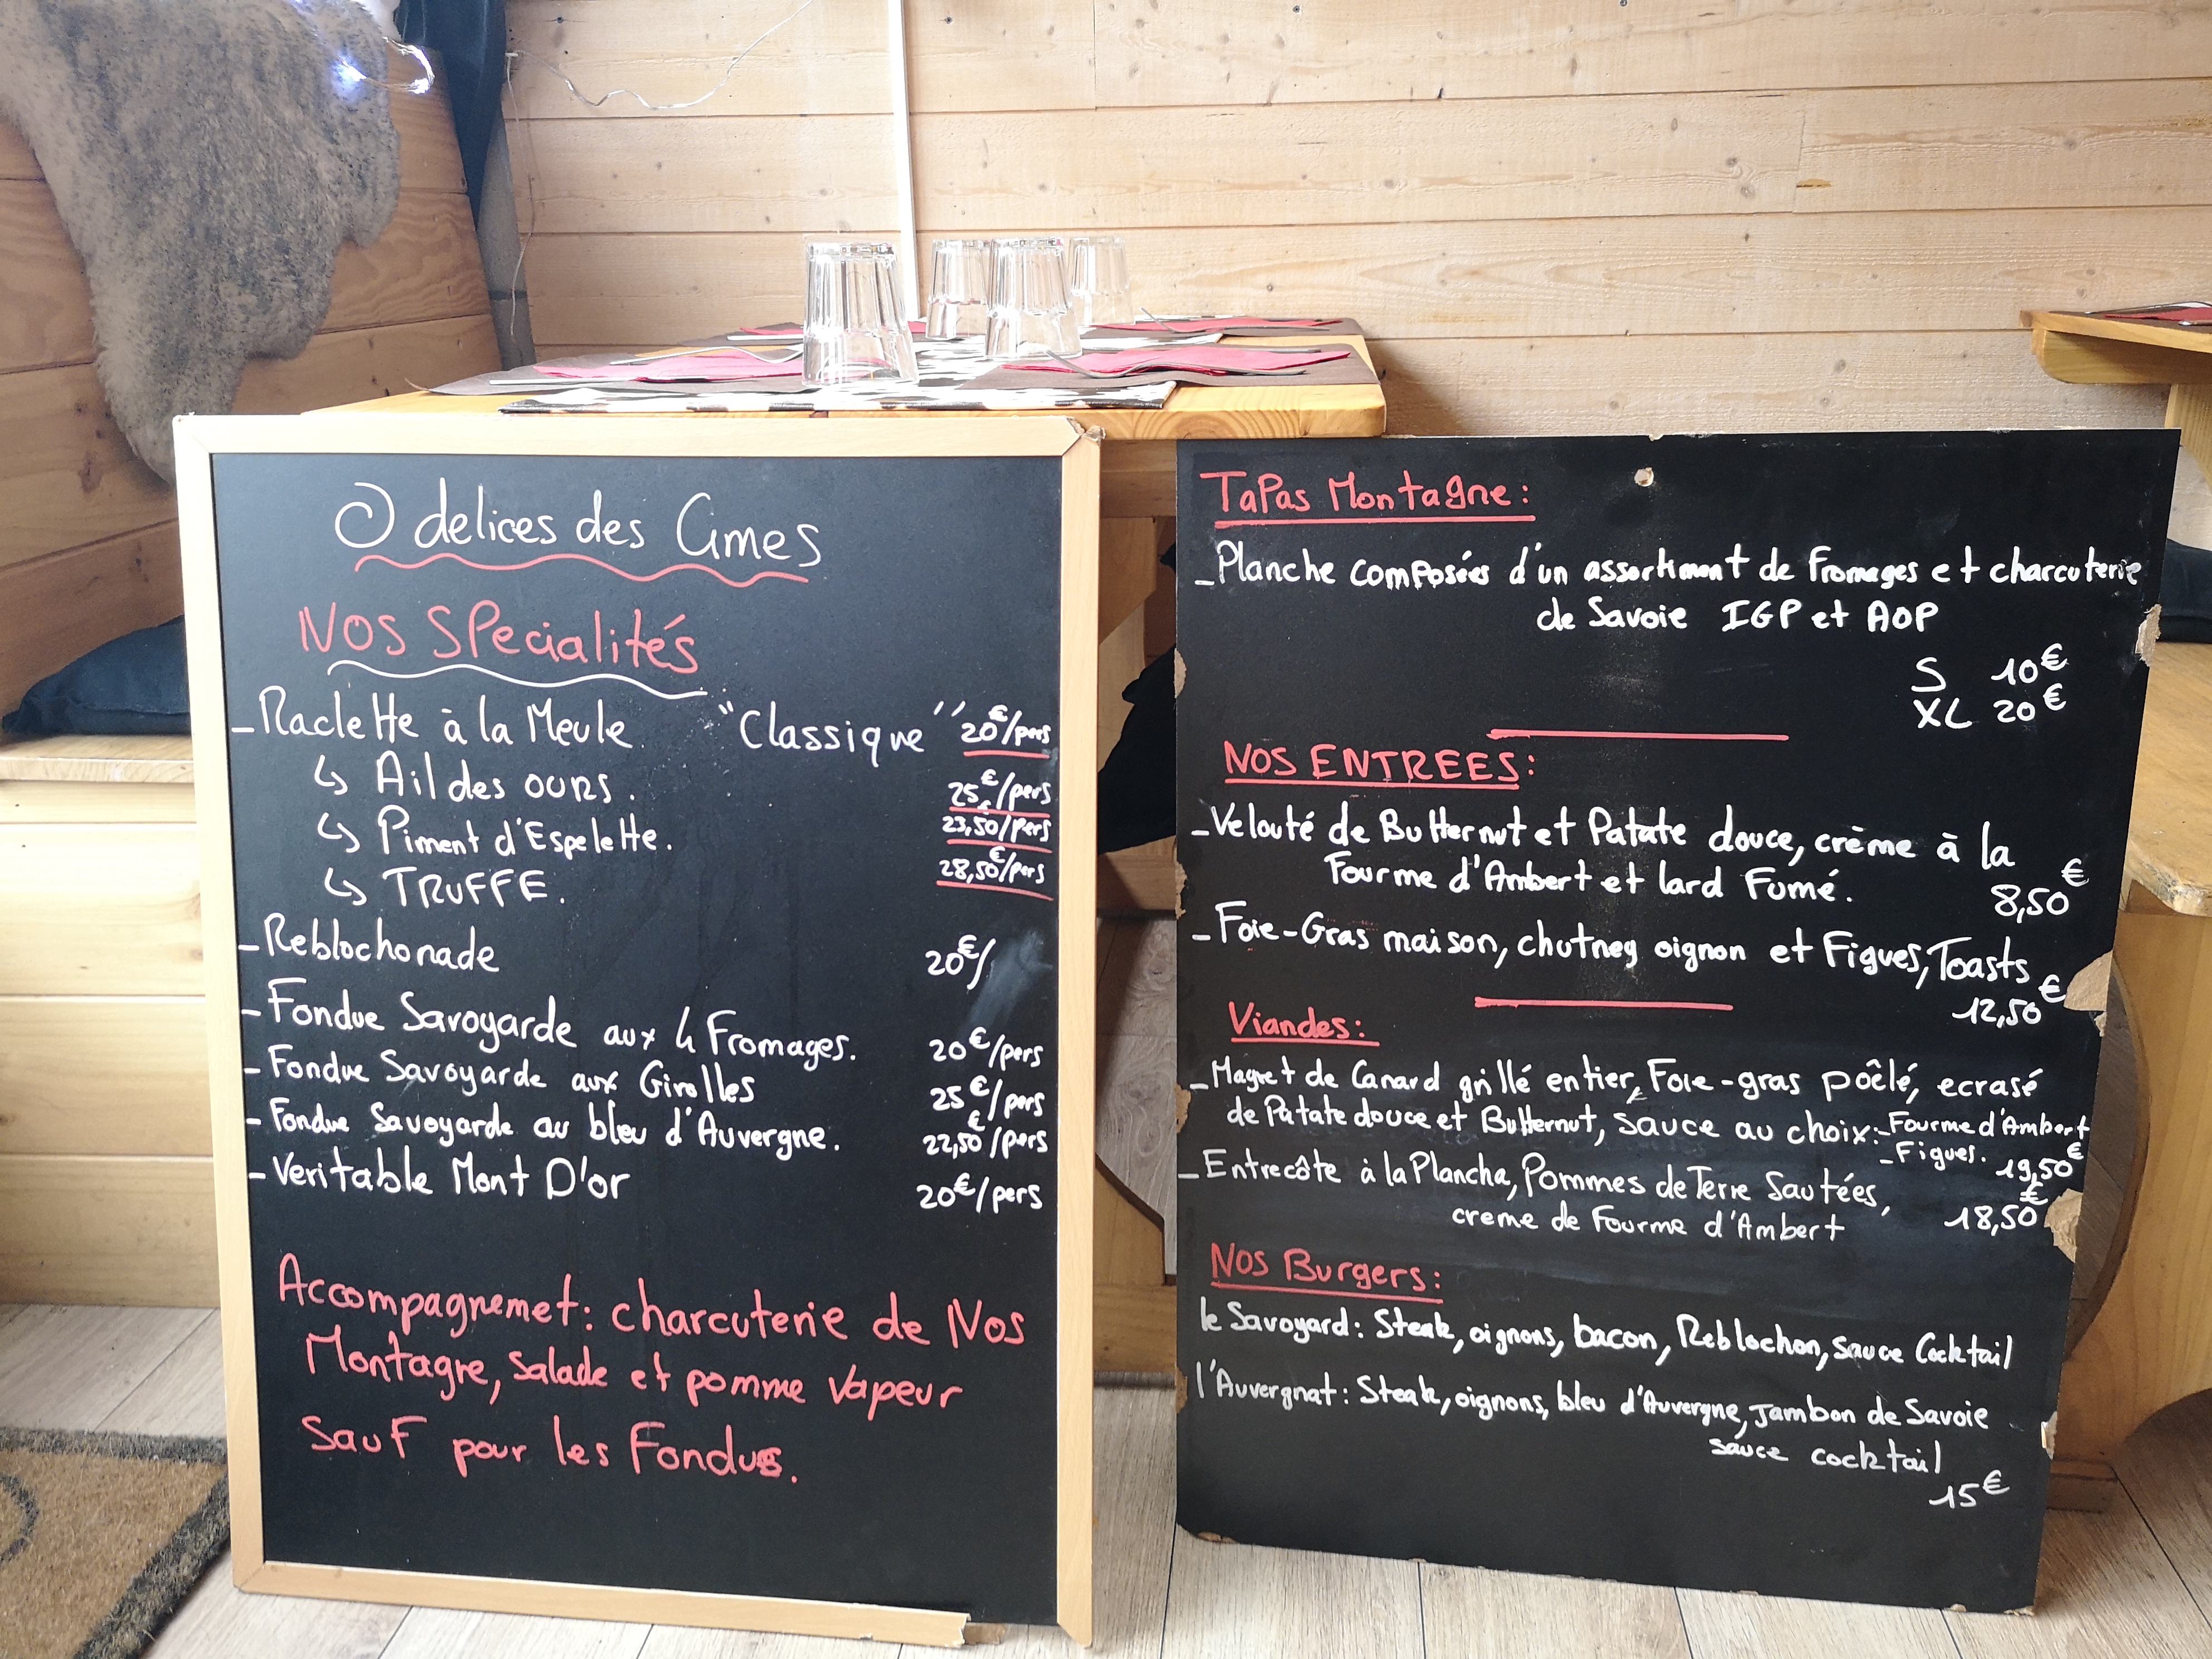 O delices des Cimes
Nos Spécialités
- Raclette à la Meule "Classique" 20€/pers
↳ Ail des ours. 25€/pers
↳ Piment d'Espelette. 23,50/pers
↳ TRUFFE. 28,50€/pers
- Reblochonade 20€/
- Fondue Savoyarde aux 4 Fromages. 20€/pers
- Fondue Savoyarde aux Girolles 25€/pers
- Fondue Savoyarde au bleu d'Auvergne. 22,50€/pers
- Veritable Mont D'or 20€/pers
Accompagnemet: charcuterie de Nos
Montagre, salade et pomme vapeur
Sauf pour les Fondus.
Tapas Montagne:
- Planche composées d'un assortiment de Fromages et charcuterie
de Savoie IGP et AOP
S 10€
XL 20€
NOS ENTREES:
- Velouté de Butternut et Patate douce, crème à la
Fourme d'Ambert et lard Fumé. 8,50€
- Foie-Gras maison, chutney oignon et Figues, Toasts
12,50€
Viandes:
- Magret de Canard grillé entier, Foie-gras pôêlé, ecrasé
de Patate douce et Butternut, sauce au choix: - Fourme d'Ambert
- Figues. 19,50€
- Entrecôte à la Plancha, Pommes de Terre Sautées,
creme de Fourme d'Ambert 18,50€
Nos Burgers:
le Savoyard: Steak, oignons, bacon, Reblochon, sauce Cocktail
l'Auvergnat: Steak, oignons, bleu d'Auvergne, Jambon de Savoie
sauce cocktail
15€